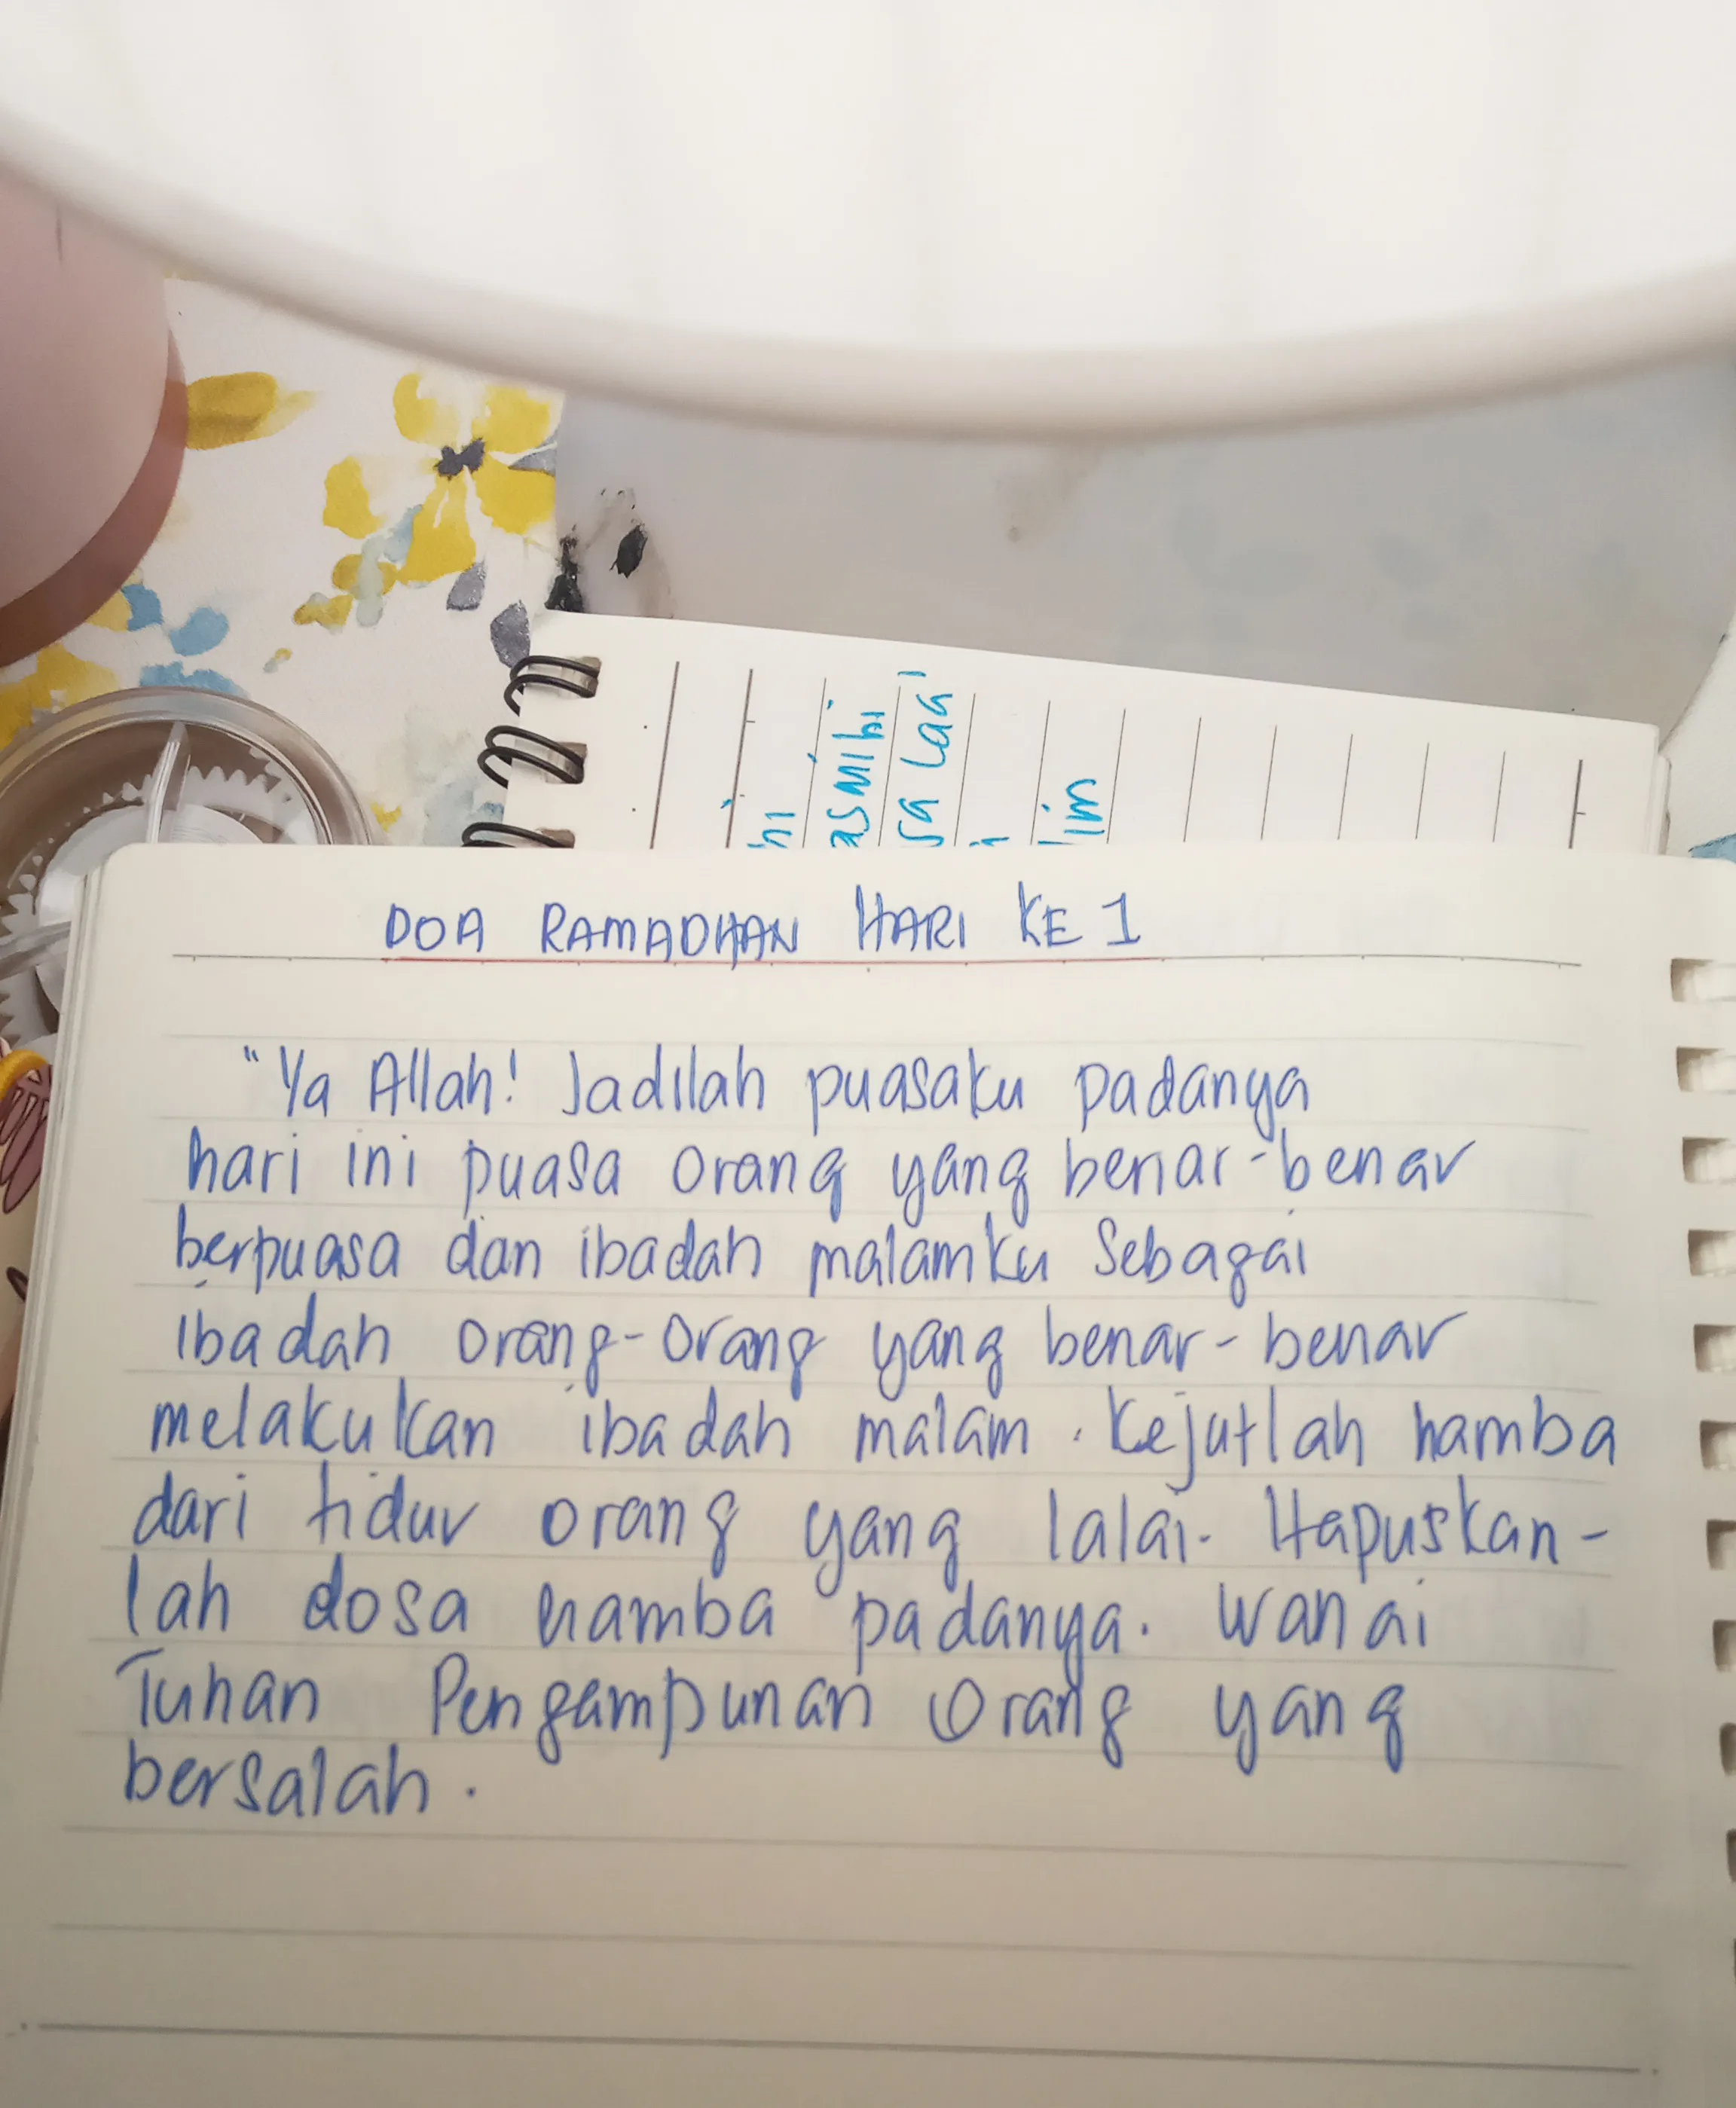 hi
asmihi
sa Laa
lin
DOA RAMADHAN HARI KE 1
"Ya Allah! Jadilah puasaku padanya
hari ini puasa orang yang benar-benar
berpuasa dan ibadah malamku Sebagai
ibadah orang-orang yang benar-benar
melakukan ibadah malam. Kejutlah hamba
dari tidur orang yang lalai. Hapuskan-
lah dosa hamba padanya. Wahai
Tuhan Pengampunan Orang yang
bersalah.